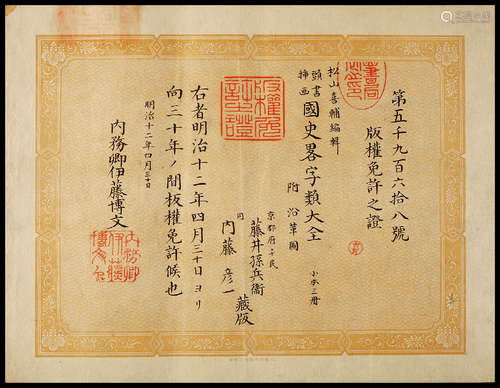 第五千九百六拾八號
版權免許之證
松山喜輔編輯
頭書
挿画
國史畧字類大全
附 沿革圖
小本二冊
京都府平民
藤井孫兵衞
同
内藤彦一
藏版
右者明治十二年四月三十日ヨリ
向三十年ノ間板權免許候也
明治十二年四月三十日
内務卿伊藤博文
版權免許之證
内務卿伊藤博文印